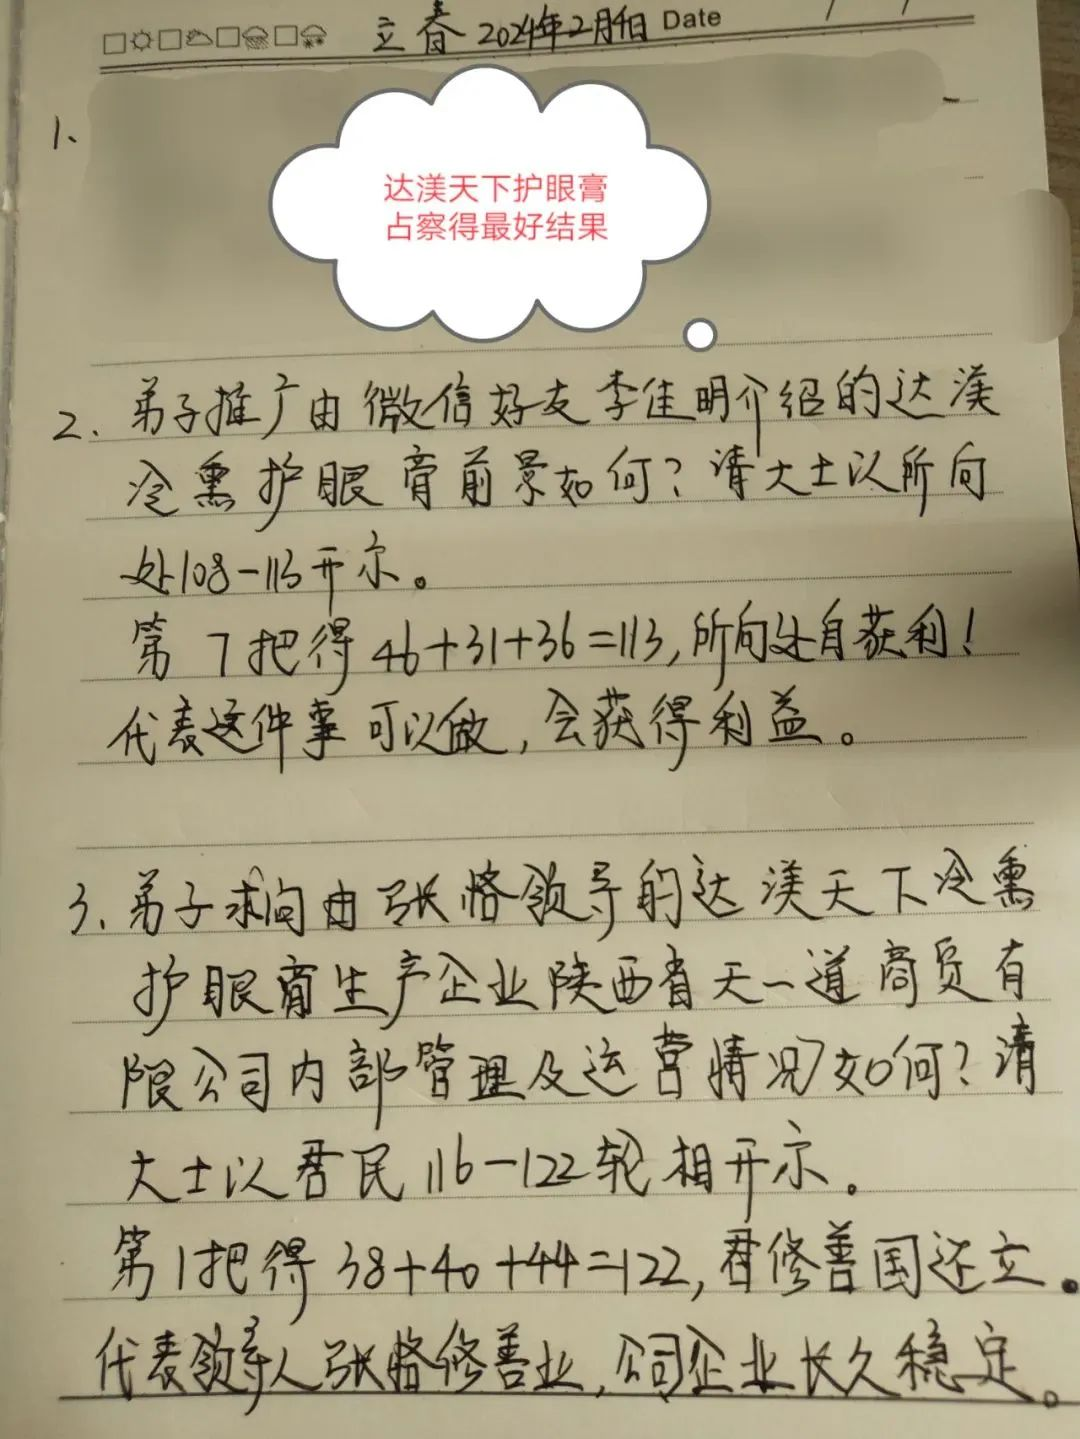 立春 2024年2月4日 Date
1、
达渼天下护眼膏
占察得最好结果
2、弟子推广由微信好友李佳明介绍的达渼
冷熏护眼膏前景如何？请大士以所向
处108-113开示。
第7把得46+31+36=113,所向处自获利！
代表这件事可以做,会获得利益。
3、弟子求问由张恪领导的达渼天下冷熏
护眼膏生产企业陕西省天一道商贸有
限公司内部管理及运营情况如何？请
大士以君民116-122轮相开示。
第1把得38+40+44=122,君修善国还立。
代表领导人张恪修善业,公司企业长久稳定。